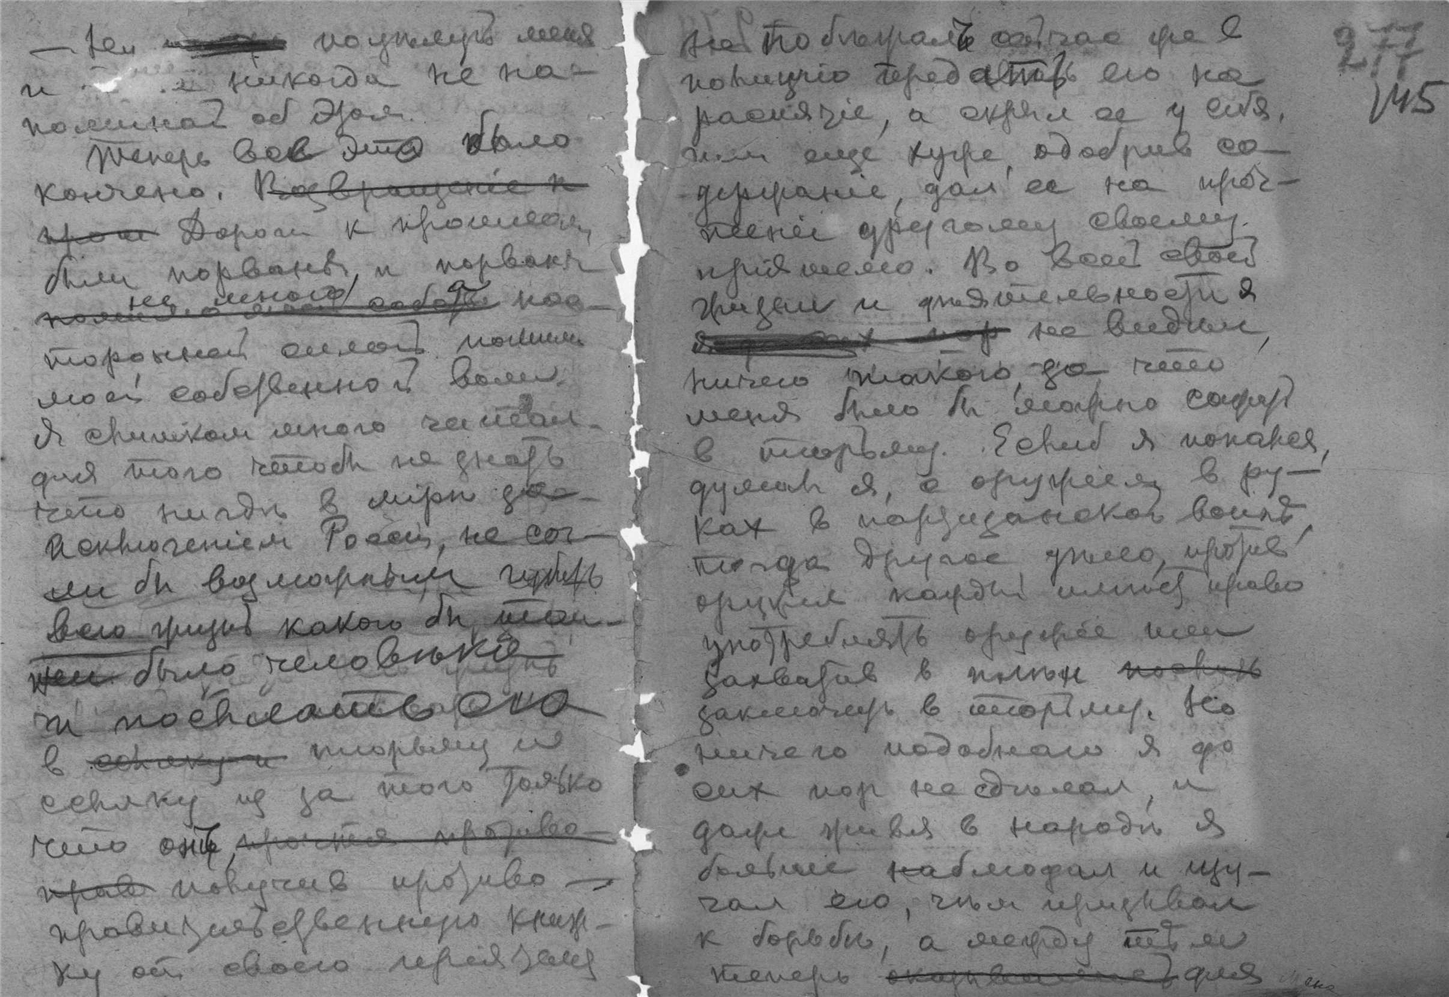 — [Чем] поцѣлуетъ меня
и никогда не на-
поминай об этом.
Теперь все это было
кончено. Возвращеніе к
прош Дороги к прошлому
были порваны, и порваны
не мною, а пос-
торонней силой помимо
моей собственной воли.
Я слишком много читал
для того чтобы не знать
что нигдѣ в мірѣ за
исключеніем Россіи, не соч-
ли бы возможным губить
всю жизнь какого бы то ни
было человѣка
и посылать его
в ссылку и тюрьму и
ссылку из за того только
что онъ, прочтя противо-
прав получив противо-
правительственную книж-
ку от своего пріятеля
не побѣжал сейчас же в
полицію передавать его на
распятіе, а скрыл ее у себя,
или еще хуже, одобрив со-
держаніе, дал ее на проч-
теніе другому своему
пріятелю. Во всей своей
жизни и дѣятельности я
не видѣл
ничего такого, за что
меня было бы можно садить
в тюрьму. Если б я попался,
думал я, с оружіем в ру-
ках в партизанской войнѣ,
тогда другое дѣло, против
оружія каждый имѣет право
употреблять оружіе или
захватив в плѣн посадить
заключить в тюрьму. Но
ничего подобнаго я до
сих пор не сдѣлал, и
даже живя в народѣ я
болѣе наблюдал и изу-
чал его, чѣм призывал
к борьбѣ, а между тѣм
теперь оказывается для меня
277
145